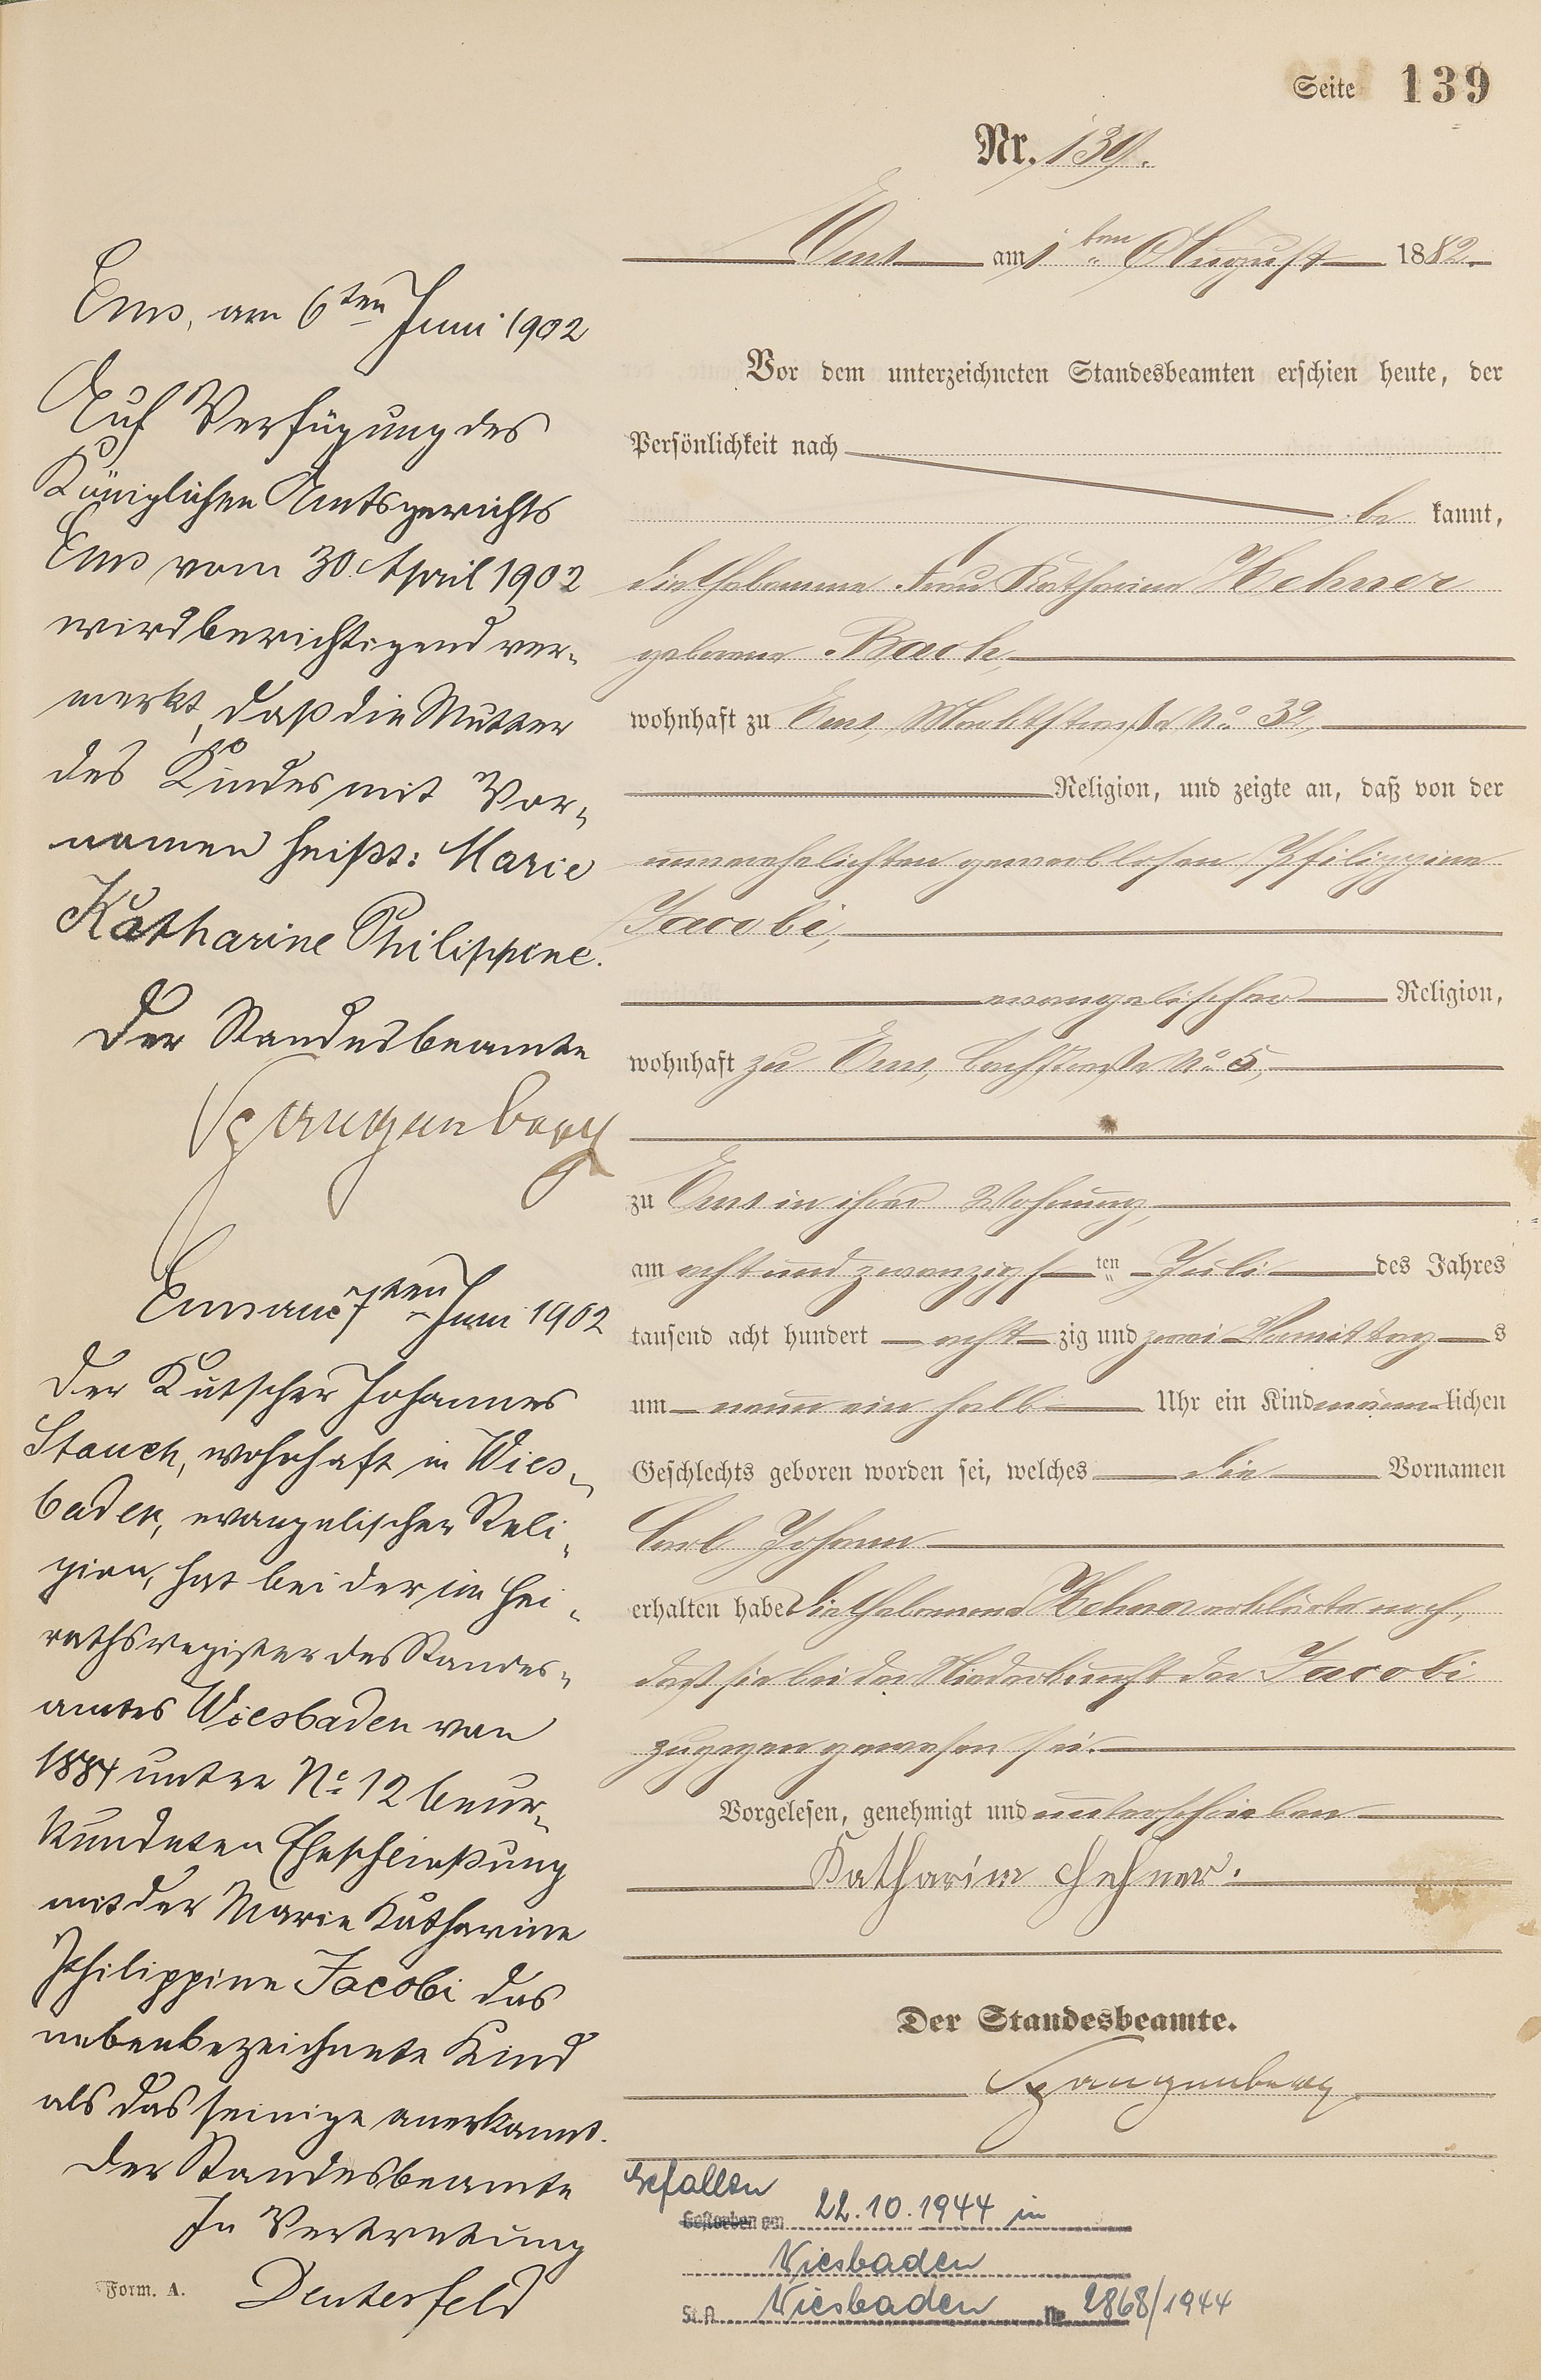 Seite 139
Nr. 139.
Ems am 1ten August 1882.
Vor dem unterzeichneten Standesbeamten erschien heute, der
Persönlichkeit nach
be kannt,
die Hebamme Frau Katharina Hehner
geborene Bach,
wohnhaft zu Ems, Marktstraße No. 32,
Religion, und zeigte an, daß von der
unverehelichten gewerblosen Philippine
Jacobi,
evangelischer Religion,
wohnhaft zu Ems, Bachstraße No. 5,
zu Ems in ihrer Wohnung,
am acht und zwanzigsten Juli des Jahres
tausend acht hundert acht zig und zwei Vormittags
um neun ein halb Uhr ein Kind männlichen
Geschlechts geboren worden sei, welches die Vornamen
Carl Johann
erhalten habe. Die Hebamme Hehner erklärte noch,
daß sie bei der Niederkunft der Jacobi
zugegen gewesen sei.
Vorgelesen, genehmigt und unterschrieben
Katharine Hehner.
Der Standesbeamte.
Spangenberg
Ems, am 6ten Juni 1902
Auf Verfügung des
Königlichen Amtsgerichts
Ems vom 30. April 1902
wird berichtigend ver-
merkt, daß die Mutter
des Kindes mit Vor-
namen heißt: Marie
Katharine Philippine.
Der Standesbeamte
Spangenberg
Ems am 7ten Juni 1902
Der Kutscher Johannes
Stauch, wohnhaft in Wies-
baden, evangelischer Reli-
gion, hat bei der im Hei-
rathsregister des Standes-
amtes Wiesbaden von
1884 unter No. 12 beur-
kundeten Eheschließung
mit der Marie Katharine
Philippine Jacobi das
nebenbezeichnete Kind
als das seinige anerkannt.
Der Standesbeamte
In Vertretung
Deuterfeld
Form. A.
Gefallen
Gestorben am 22.10.1944 in
Wiesbaden
St.A. Wiesbaden Nr. 2868/1944